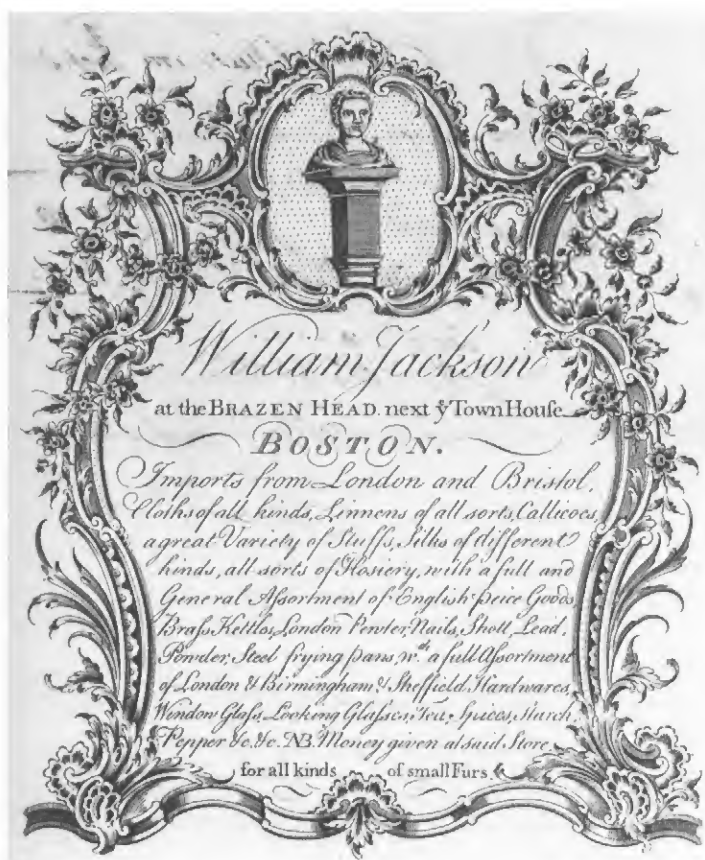 William Jackson
at the BRAZEN HEAD. next yͤ Town Houſe
BOSTON.
Imports from London and Bristol,
Cloths of all kinds, Linnens of all sorts, Callicoes,
a great Variety of Stuffs, Silks of different
kinds, all sorts of Hosiery, with a full and
General Aſsortment of English peice Goods
Braſs Kettles, London Pewter, Nails, Shott, Lead,
Powder, Steel frying pans, wᵗʰ a full Aſsortment
of London & Birmingham & Sheffield Hardwares,
Window Glaſs, Looking Glaſses, Tea, Spices, Starch
Pepper &c. &c. NB. Money given at said Store
for all kinds of small Furs